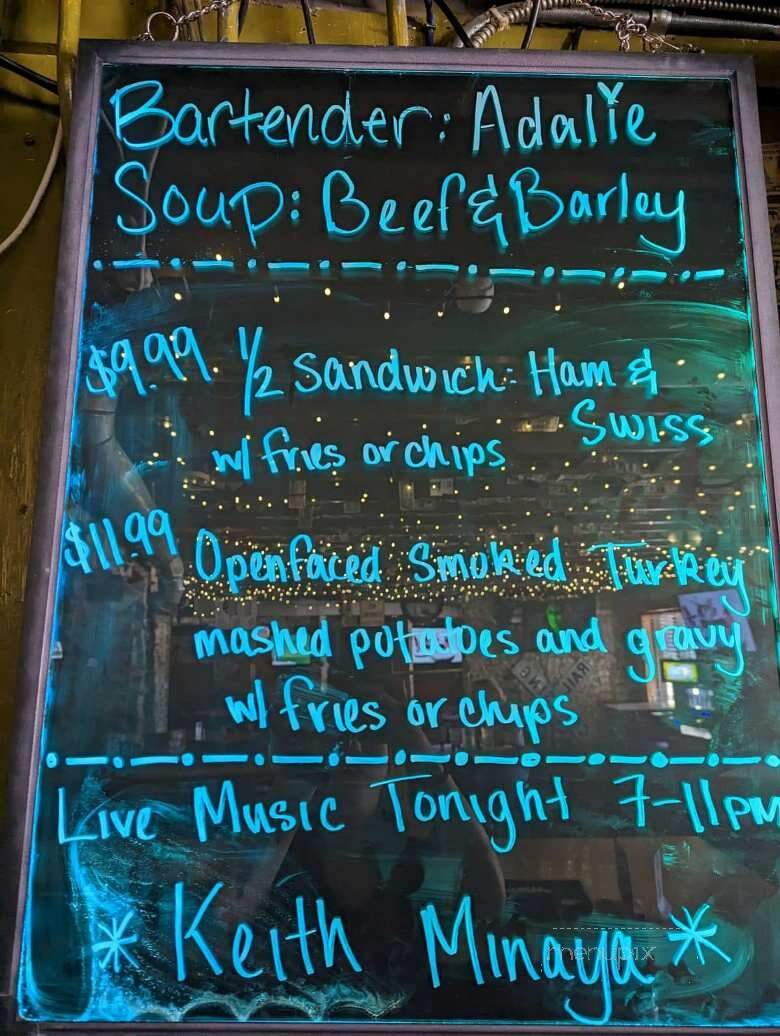 Bartender: Adalie
Soup: Beef & Barley
$9.99 1/2 Sandwich: Ham &
Swiss
w/ fries or chips
$11.99 Openfaced Smoked Turkey
mashed potatoes and gravy
w/ fries or chips
Live Music Tonight 7-11pm
* Keith Minaya *
menupix